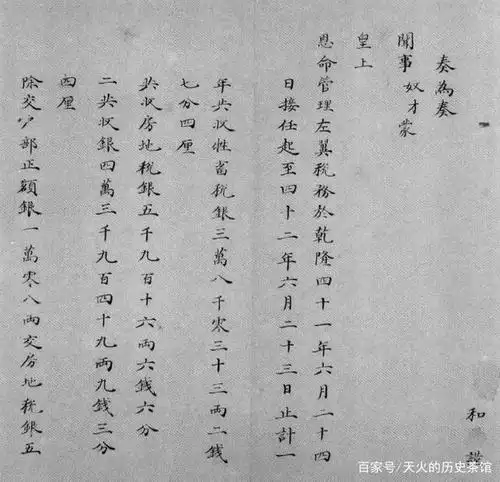 和
奏為奏
聞事奴才蒙
皇上
恩命管理左翼税務於乾隆四十一年六月二十四
日接任起至四十二年六月二十三日止計一
年共收牲畜税銀三萬八千零三十三両二錢
七分四厘
共收房地税銀五千九百十六両六錢六分
二共收銀四萬三千九百四十九両九錢三分
四厘
除交户部正額銀一萬零八両交房地税銀五
百家号/天火的历史茶馆